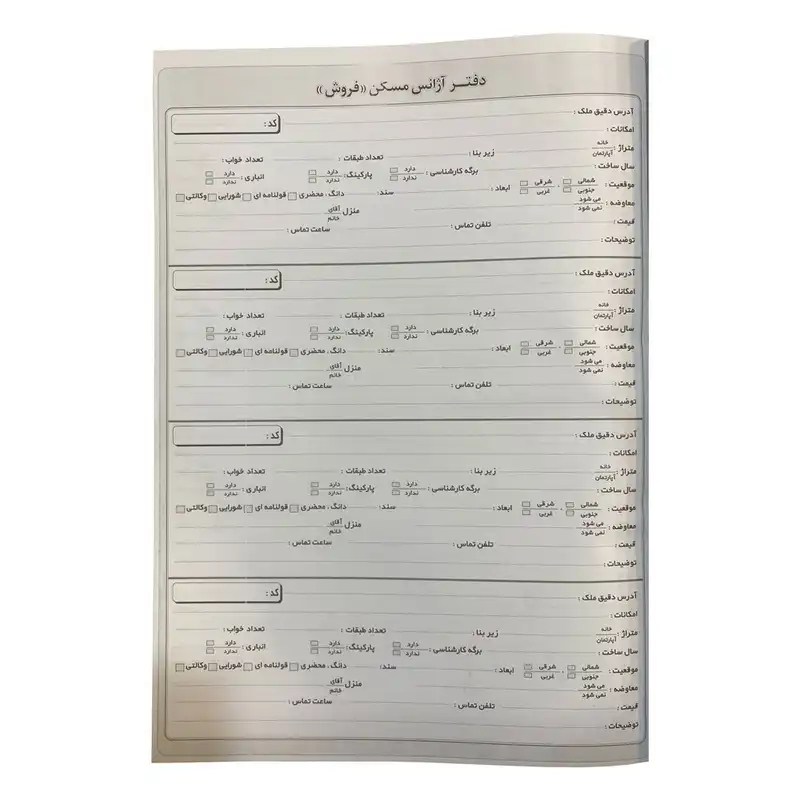 دفتـر آژانس مسکن «فروش»
آدرس دقیق ملک : کد :
امکانات :
متراژ : خانه آپارتمان زیر بنا : تعداد طبقات : تعداد خواب :
سال ساخت : برگه کارشناسی : دارد ندارد پارکینگ : دارد ندارد انباری : دارد ندارد
موقعیت : شمالی جنوبی . شرقی غربی ابعاد : سند: دانگ . محضری قولنامه ای شورایی وکالتی
معاوضه : می شود نمی شود منزل آقای خانم
قیمت : تلفن تماس : ساعت تماس :
توضیحات :
آدرس دقیق ملک : کد :
امکانات :
متراژ : خانه آپارتمان زیر بنا : تعداد طبقات : تعداد خواب :
سال ساخت : برگه کارشناسی : دارد ندارد پارکینگ : دارد ندارد انباری : دارد ندارد
موقعیت : شمالی جنوبی . شرقی غربی ابعاد : سند: دانگ . محضری قولنامه ای شورایی وکالتی
معاوضه : می شود نمی شود منزل آقای خانم
قیمت : تلفن تماس : ساعت تماس :
توضیحات :
آدرس دقیق ملک : کد :
امکانات :
متراژ : خانه آپارتمان زیر بنا : تعداد طبقات : تعداد خواب :
سال ساخت : برگه کارشناسی : دارد ندارد پارکینگ : دارد ندارد انباری : دارد ندارد
موقعیت : شمالی جنوبی . شرقی غربی ابعاد : سند: دانگ . محضری قولنامه ای شورایی وکالتی
معاوضه : می شود نمی شود منزل آقای خانم
قیمت : تلفن تماس : ساعت تماس :
توضیحات :
آدرس دقیق ملک : کد :
امکانات :
متراژ : خانه آپارتمان زیر بنا : تعداد طبقات : تعداد خواب :
سال ساخت : برگه کارشناسی : دارد ندارد پارکینگ : دارد ندارد انباری : دارد ندارد
موقعیت : شمالی جنوبی . شرقی غربی ابعاد : سند: دانگ . محضری قولنامه ای شورایی وکالتی
معاوضه : می شود نمی شود منزل آقای خانم
قیمت : تلفن تماس : ساعت تماس :
توضیحات :